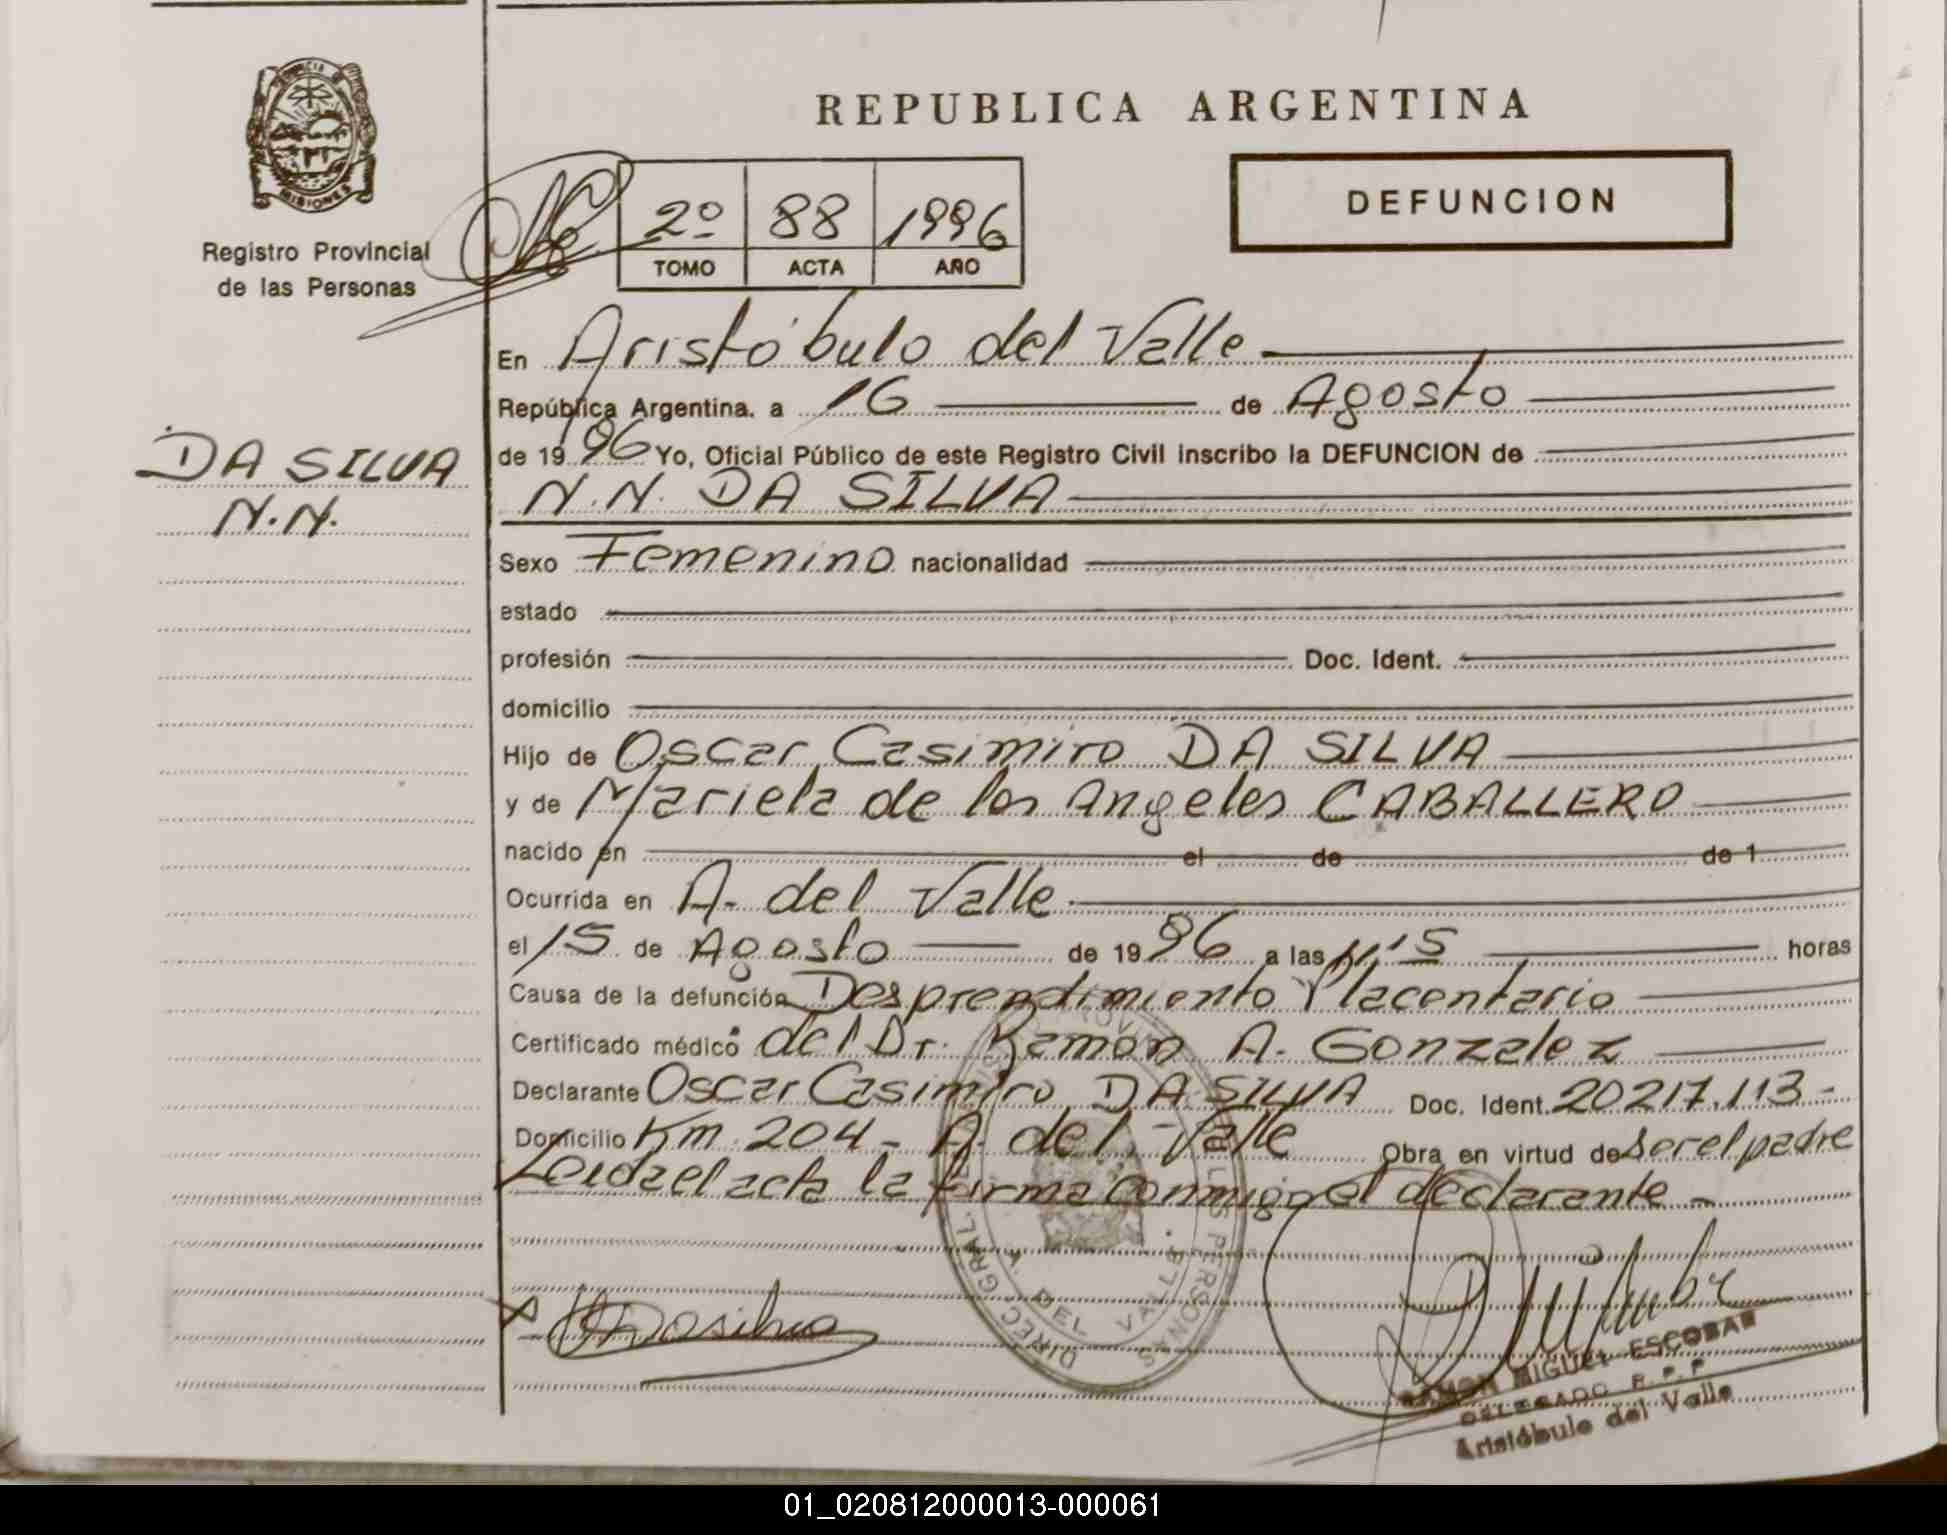 REPUBLICA ARGENTINA
PROVINCIA DE
MISIONES
Registro Provincial
de las Personas
2º 88 1996
TOMO ACTA AÑO
DEFUNCION
En Aristóbulo del Valle
República Argentina. a 16 de Agosto
de 1996 Yo, Oficial Público de este Registro Civil inscribo la DEFUNCION de
DA SILVA
N.N.
N.N. DA SILVA
Sexo Femenino nacionalidad
estado
profesión Doc. Ident.
domicilio
Hijo de Oscar Casimiro DA SILVA
y de Mariela de los Angeles CABALLERO
nacido en el de de 1
Ocurrida en A. del Valle
el 15 de Agosto de 1996 a las 15 horas
Causa de la defunción Desprendimiento Placentario
Certificado médico del Dr. Ramón A. Gonzalez
Declarante Oscar Casimiro DA SILVA Doc. Ident. 20217.113-
Domicilio Km 204 - A. del Valle Obra en virtud de ser el padre
Leida el acta la firma conmigo el declarante
DIREC. GRAL. DE LAS PERSONAS
A. DEL VALLE
X Dasilva
RAMON MIGUEL ESCOBAR
DELEGADO R. P. P.
Aristóbulo del Valle
01_020812000013-000061